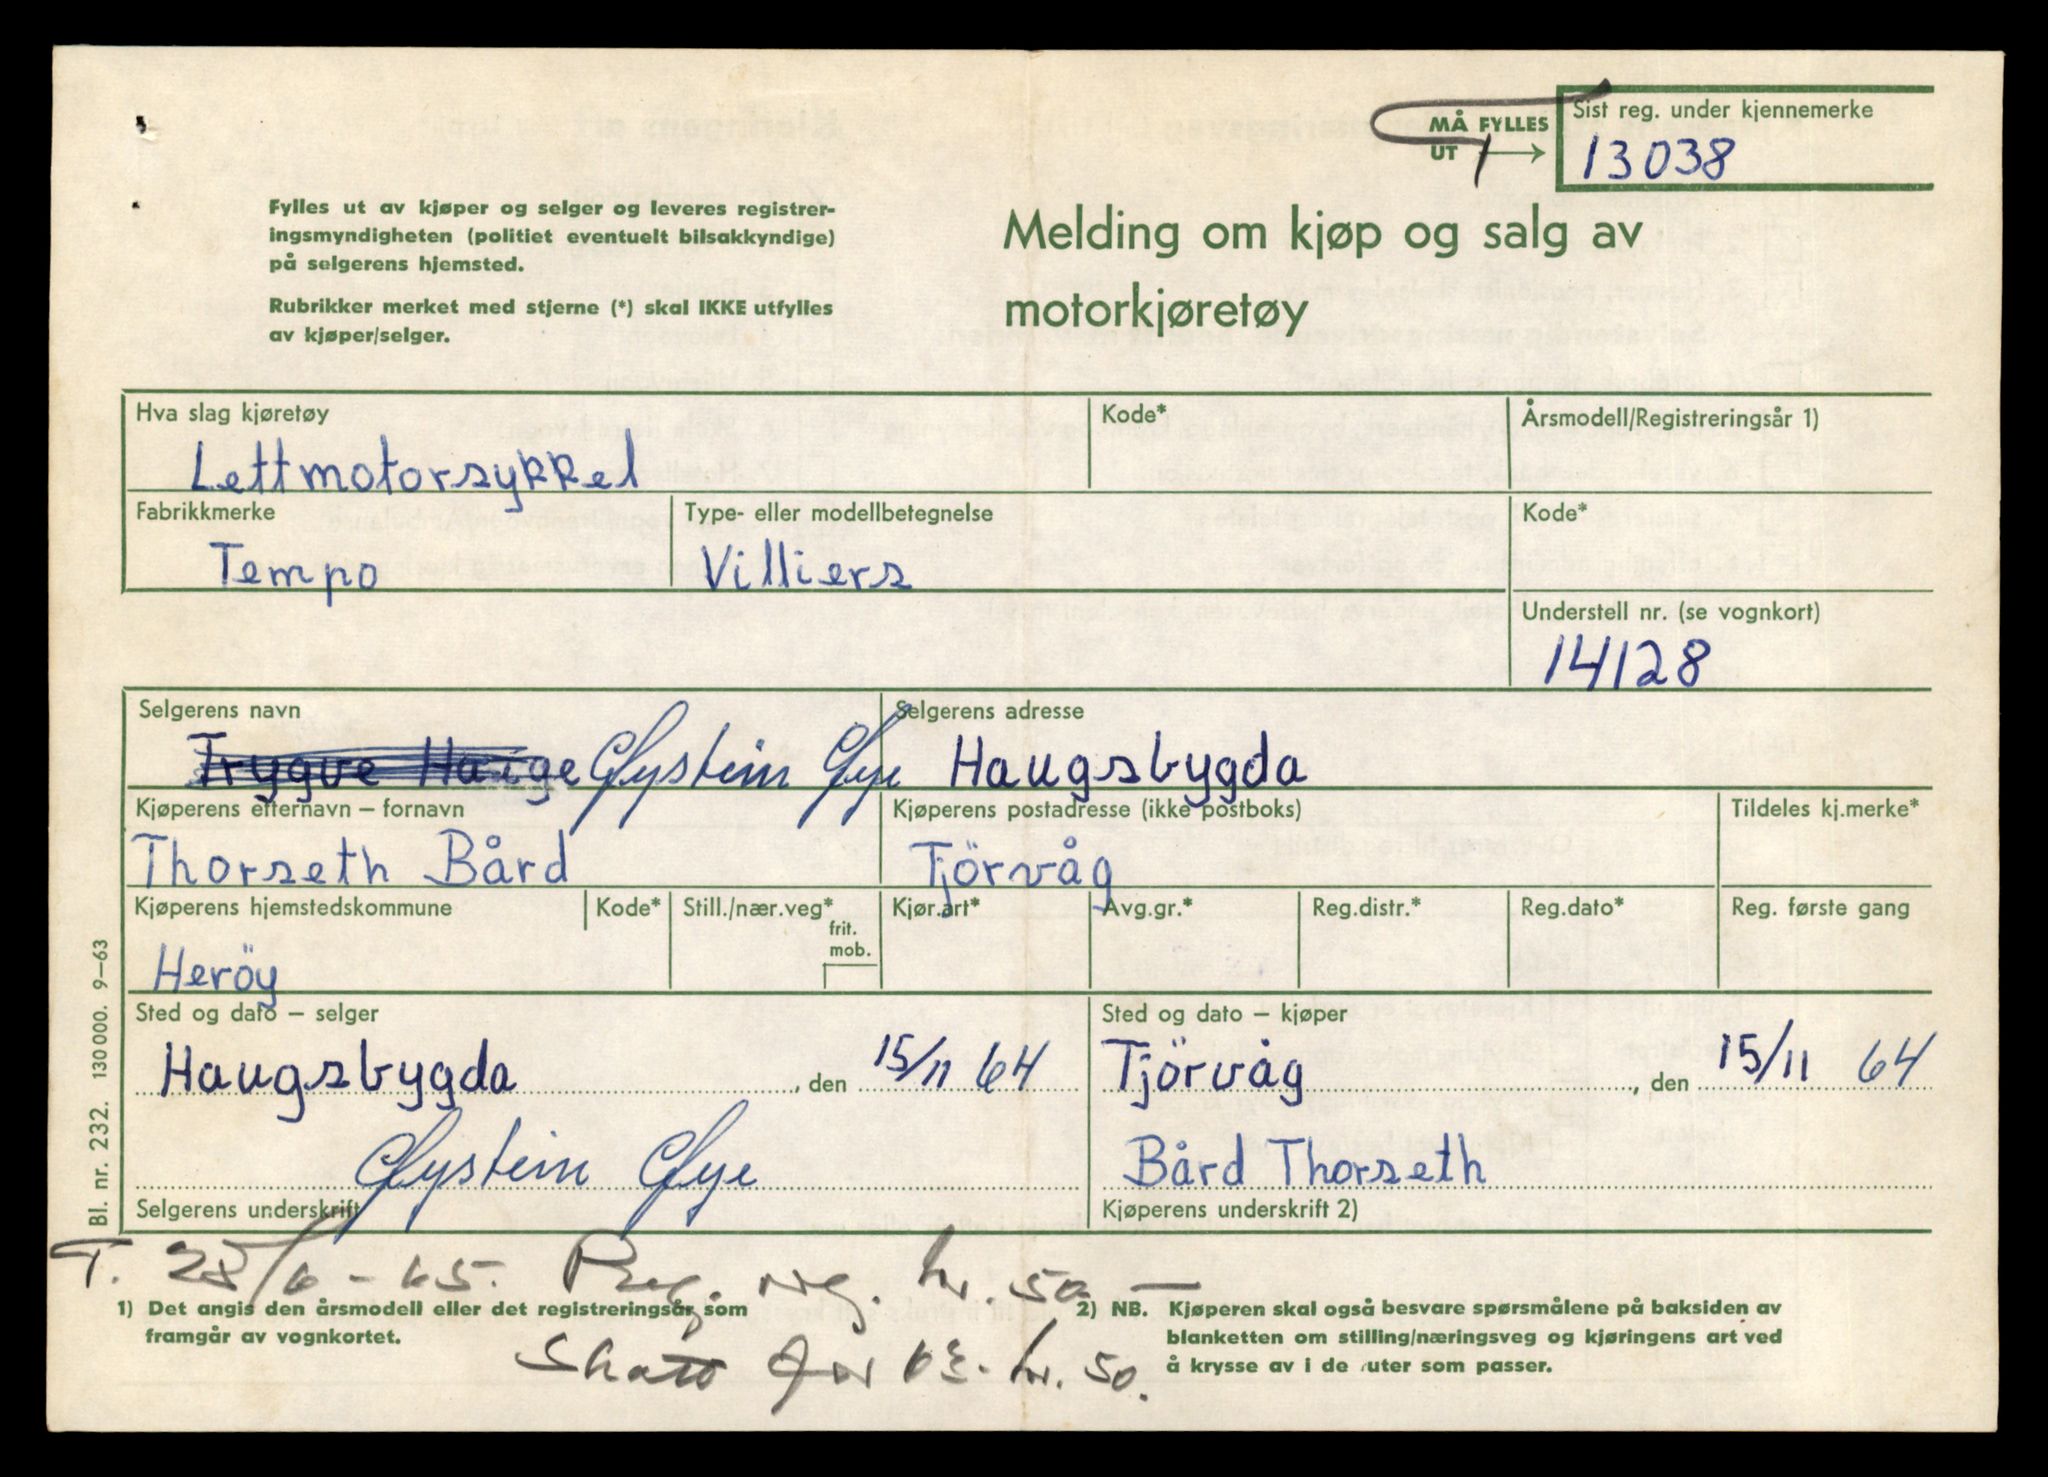 MÅ FYLLES UT →
Sist reg. under kjennemerke
13038
Fylles ut av kjøper og selger og leveres registrer-
ingsmyndigheten (politiet eventuelt bilsakkyndige)
på selgerens hjemsted.
Rubrikker merket med stjerne (*) skal IKKE utfylles
av kjøper/selger.
Melding om kjøp og salg av
motorkjøretøy
Hva slag kjøretøy
Kode*
Årsmodell/Registreringsår 1)
Lettmotorsykkel
Fabrikkmerke
Type- eller modellbetegnelse
Kode*
Tempo
Villiers
Understell nr. (se vognkort)
14128
Selgerens navn
Selgerens adresse
Trygve Hauge Øystein Øye
Haugsbygda
Kjøperens efternavn – fornavn
Kjøperens postadresse (ikke postboks)
Tildeles kj.merke*
Thorseth Bård
Tjörvåg
Kjøperens hjemstedskommune
Kode*
Still./nær.veg*
frit.
mob.
Kjør.art*
Avg.gr.*
Reg.distr.*
Reg.dato*
Reg. første gang
Heröy
Sted og dato – selger
Sted og dato – kjøper
Haugsbygda, den 15/11 64
Tjörvåg, den 15/11 64
Øystein Øye
Bård Thorseth
Selgerens underskrift
Kjøperens underskrift 2)
Bl. nr. 232. 130 000. 9–63
T. 25/6-65. kr. 50.—
1) Det angis den årsmodell eller det registreringsår som
framgår av vognkortet.
2) NB. Kjøperen skal også besvare spørsmålene på baksiden av
blanketten om stilling/næringsveg og kjøringens art ved
å krysse av i de ruter som passer.
Skatt for kr. 50.